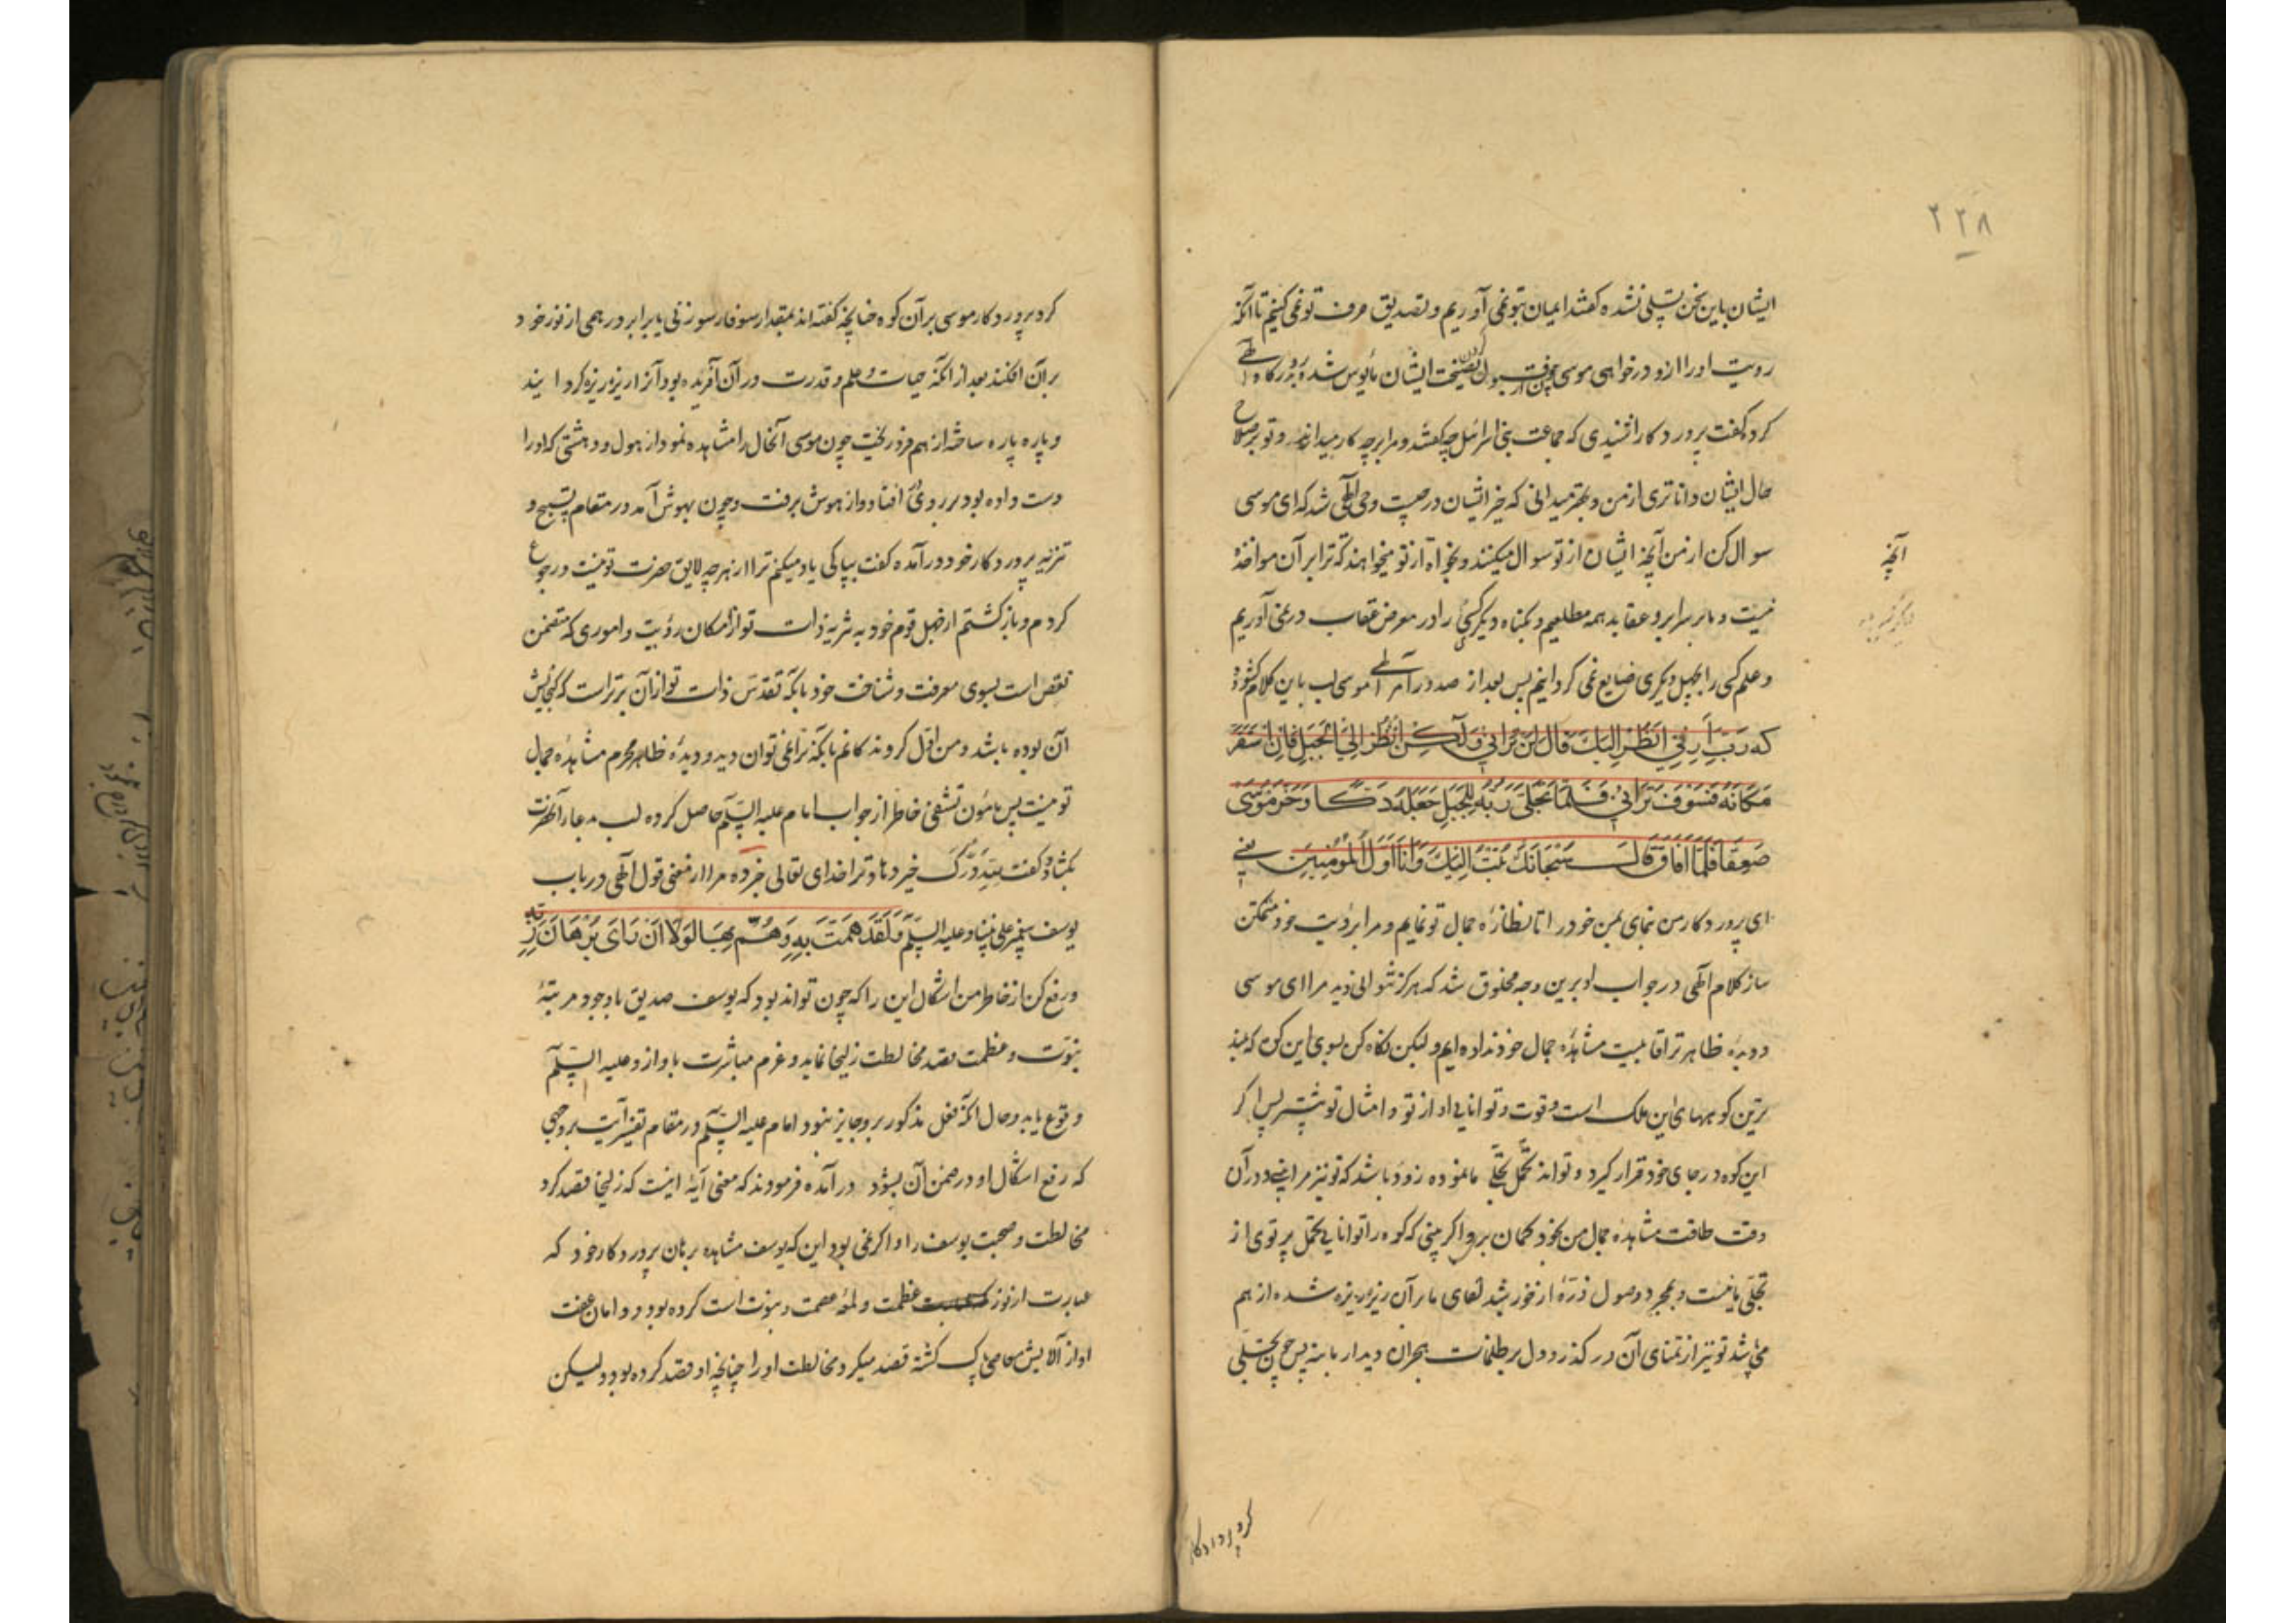 ۲۲۸
ایشان باین سخن تسلی نشده کفتند ایمان بتو نمی آوریم و تصدیق حرف تو نمی کنیم تا آنکه
رویت او را ازو درخواهی موسی چون از قبول کردن نصیحت ایشان مأیوس شد رو بدرکاه الهی
کرد و کفت پرورد کارا شنیدی که جماعت بنی اسرائیل چه کفتند و مرا بر چه کار میدارند و تو بر صلاح
حال ایشان داناتری از من و بهتر میدانی که خیر ایشان در چیست وحی الهی شد که ای موسی
سوال کن از من آنچه ایشان از تو سوال میکنند و بخواه آنچه از تو میخواهند که ترا بر آن مواخذهٔ
نیست و ما بر سرایر و عقاید همه مطلعیم و بکناه دیکری کسی را در معرض عقاب در نمی آوریم
و علم کسی را بجهل دیکری ضایع نمی کردانیم پس بعد از صدور امر الهی موسی لب باین کلام کشود
که رَبِّ أَرِنِي أَنْظُرْ إِلَيْكَ قَالَ لَنْ تَرَانِي وَلَكِنْ انْظُرْ إِلَى الْجَبَلِ فَإِنِ اسْتَقَرَّ
مَكَانَهُ فَسَوْفَ تَرَانِي فَلَمَّا تَجَلَّى رَبُّهُ لِلْجَبَلِ جَعَلَهُ دَكًّا وَخَرَّ مُوسَى
صَعِقًا فَلَمَّا أَفَاقَ قَالَ سُبْحَانَكَ تُبْتُ إِلَيْكَ وَأَنَا أَوَّلُ الْمُؤْمِنِينَ یعنی
ای پرورد کار من بنمای بمن خود را تا نظارهٔ جمال تو نمایم و مرا برؤیت خود متمکن
ساز کلام الهی در جواب او برین وجه مخلوق شد که هرکز نتوانی دید مرا ای موسی
و دیده ظاهر ترا قابلیت مشاهدهٔ جمال خود نداده ایم و لیکن نکاه کن بسوی این کوه که بلند
ترین کوههای این ملک است و قوت و توانایی او از تو و امثال تو بیشتر پس اکر
این کوه در جای خود قرار کیرد و تواند تحمل تجلی ما نمود زود باشد که تو نیز مرا بینی و در آن
وقت طاقت مشاهدهٔ جمال من بخود کمان برو اکر بینی که کوه را توانایی تحمل پرتوی از
تجلی ما نیست و بمجرد وصول ذرهٔ از خورشید لقای ما بر آن ریزه ریزه شده از هم
می پاشد تو نیز از تمنای آن در کذر و دل بر ظلمات هجران دیدار ما بنه پس چون تجلی
آنچه
کرد پروردکار
کرد پرورد کار موسی بر آن کوه چنانچه کفته اند بمقدار سوفار سوزنی یا برابر درهمی از نور خود
بر آن افکند بعد از انکه حیات و علم و قدرت در آن آفریده بود آنرا ریزه ریزه کردانید
و پاره پاره ساخته از هم فرو ریخت چون موسی آنحال را مشاهده نمود از هول و دهشتی که او را
دست داده بود بر روی افتاد و از هوش برفت و چون بهوش آمد در مقام تسبیح و
تنزیه پرورد کار خود در آمده کفت بپاکی یاد میکنم ترا از هر چه لایق حضرت تو نیست و رجوع
کردم و باز کشتم از جهل قوم خود به تنزیه ذات تو از امکان رؤیت و اموری که متضمن
نقص است بسوی معرفت و شناخت خود بانکه تقدس ذات تو از آن برتر است که کنجایش
آن بوده باشد و من اول کروندکانم بانکه ترا نمی توان دید و دیدهٔ ظاهر محرم مشاهدهٔ جمال
تو نیست پس مأمون تشفی خاطر از جواب امام علیه السلام حاصل کرده لب بدعای آنحضرت
بکشاد و کفت للهِ دَرُّكَ خیر دهاد ترا خدای تعالی خبر ده مرا از معنی قول الهی در باب
یوسف پیغمبر علی نبینا و علیه السلام وَلَقَدْ هَمَّتْ بِهِ وَهَمَّ بِهَا لَوْلَا أَنْ رَأَى بُرْهَانَ رَبِّهِ
و رفع کن از خاطر من اشکال این را که چون تواند بود که یوسف صدیق با وجود مرتبهٔ
نبوت و عظمت قصد مخالطت زلیخا نماید و عزم مباشرت با و ازو علیه السلام
وقوع یابد و حال آنکه فعل مذکور برو جایز نبود امام علیه السلام در مقام تفسیر آیت بروجهی
که رفع اشکال او در ضمن آن بشود در آمده فرمودند که معنی آیه اینست که زلیخا قصد کرد
مخالطت و صحبت یوسف را و اکر نمی بود این که یوسف مشاهده برهان پرورد کار خود که
عبارت از نور عظمت و لمعهٔ عصمت و نبوت است کرده بود و دامان عفت
او از آلایش معاصی پاک کشته قصد میکرد مخالطت او را چنانچه او قصد کرده بود و لیکن